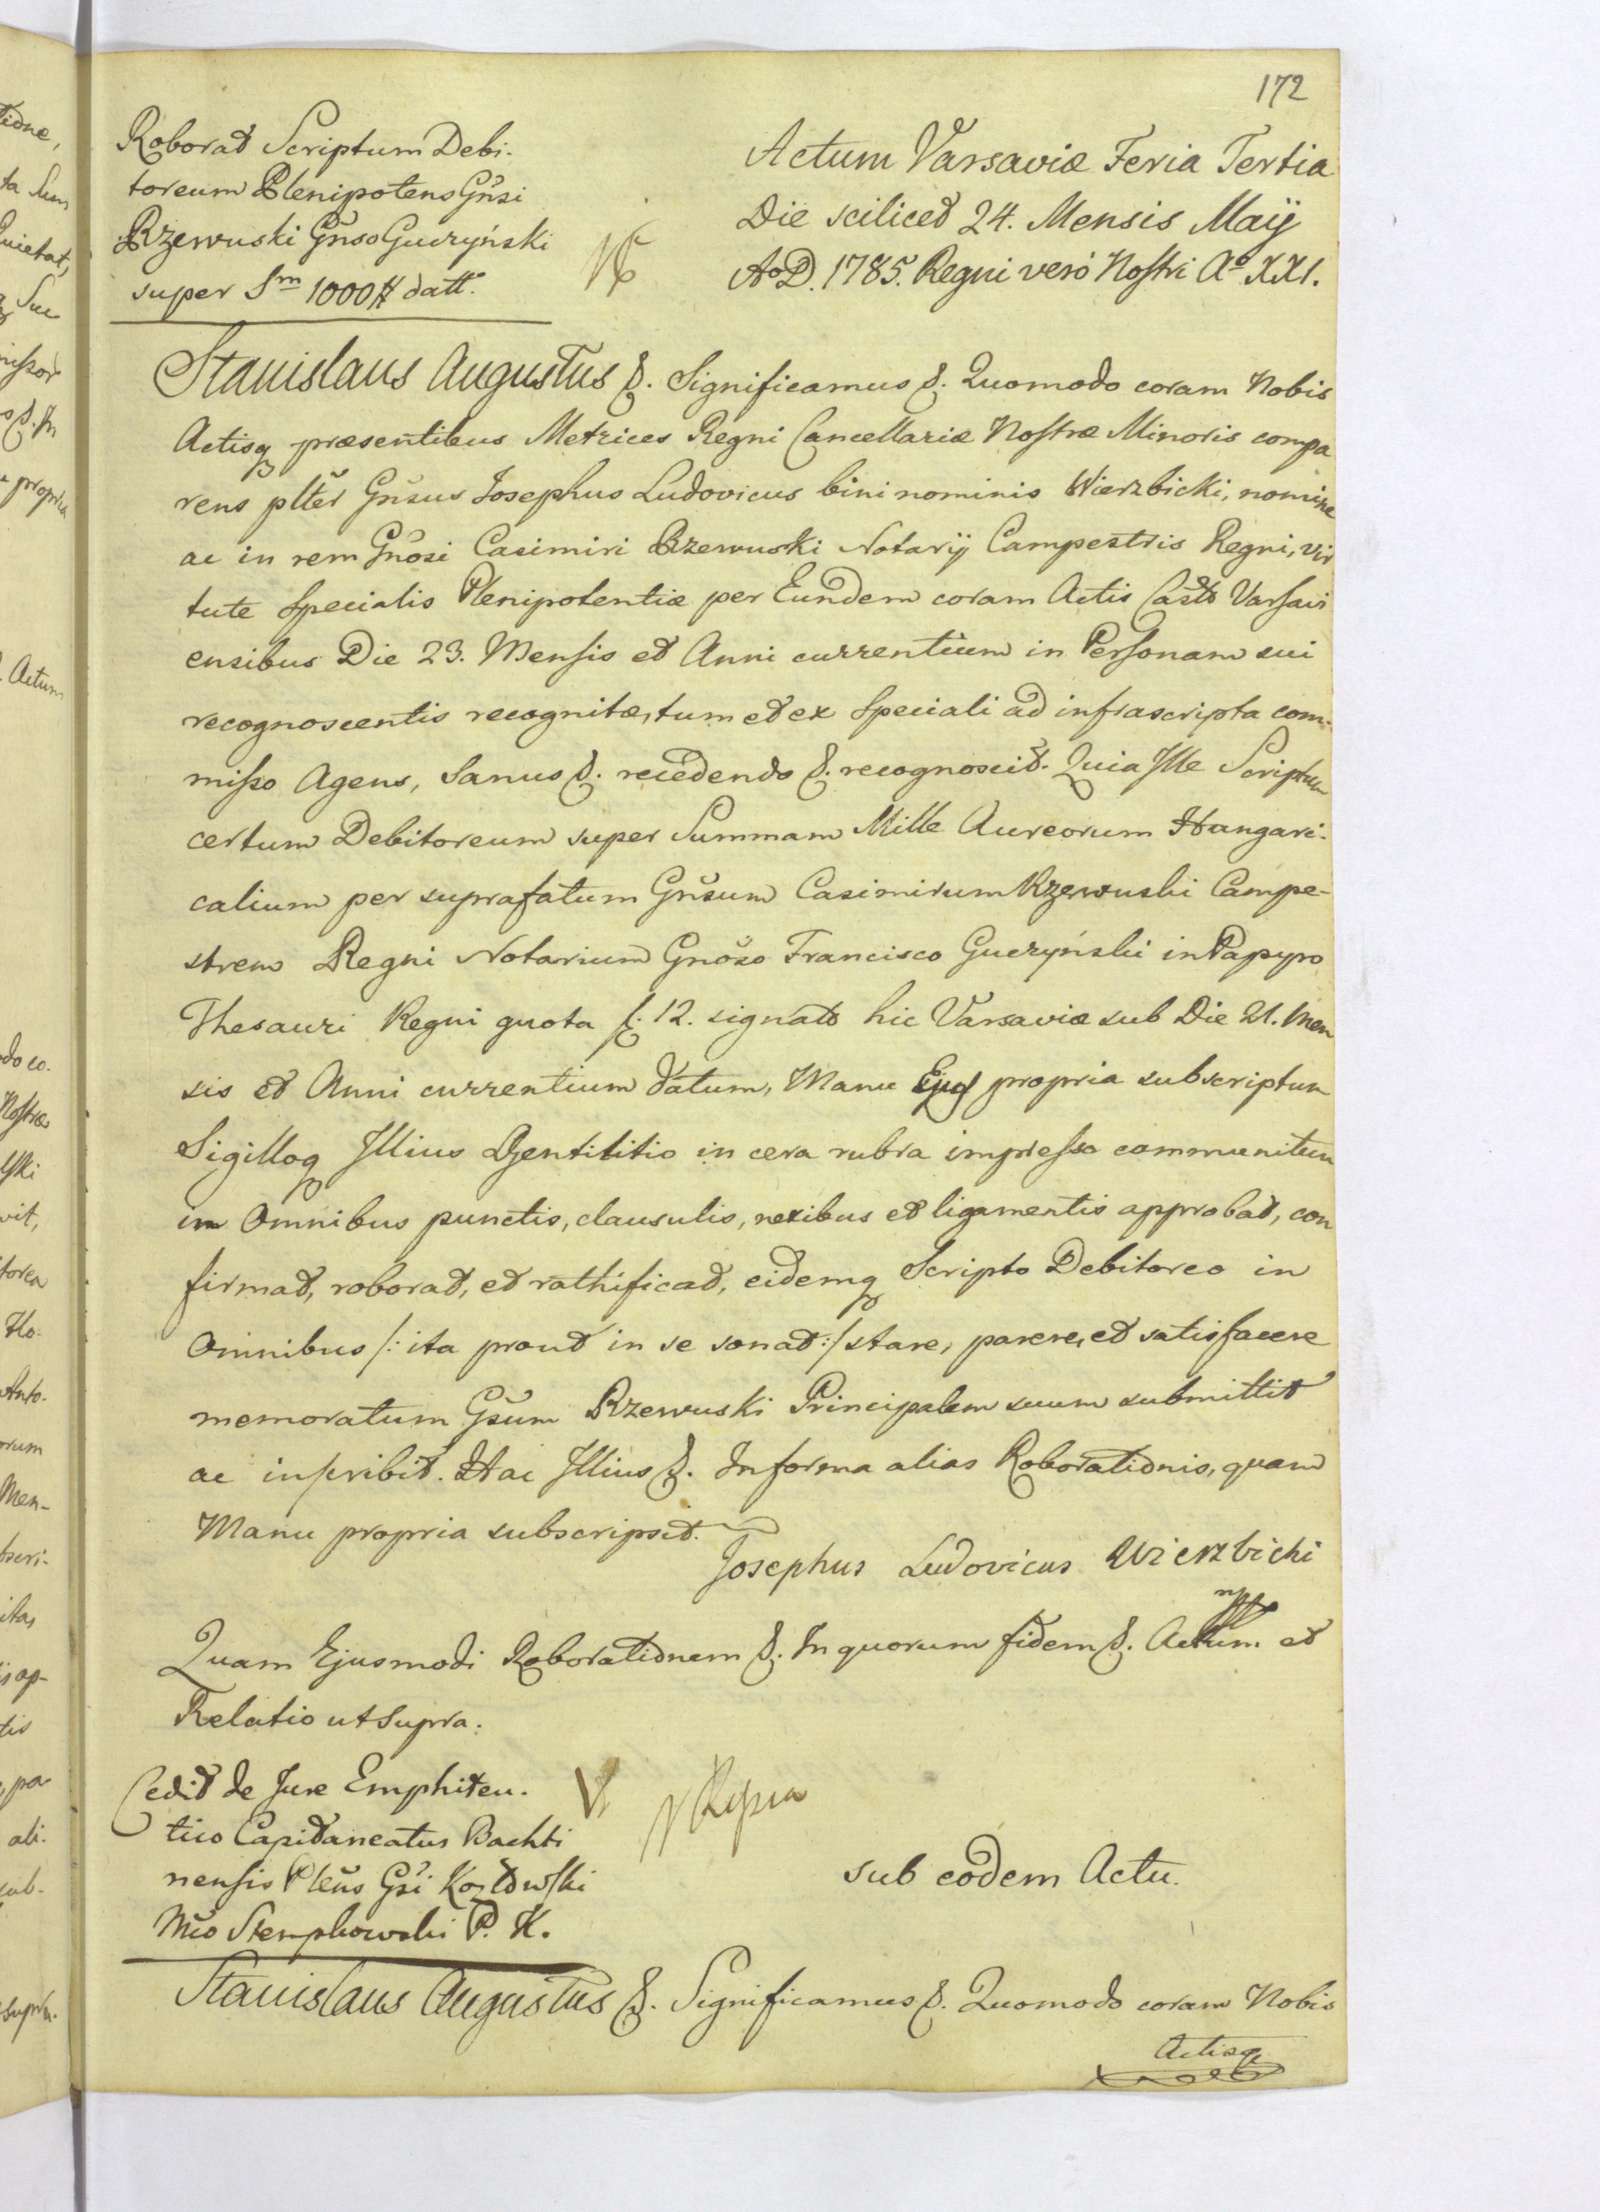 172
Roborat Scriptum Debi-
toreum Plenipotens Gnsi
Rzewuski Gnso Guczyński
super Sm 1000 # datt.
Actum Varsaviæ Feria Tertia
Die scilicet 24. Mensis Maij
AoD. 1785. Regni veró Nostri Ao XXI.
Stanislaus Augustus &. Significamus &. Quomodo coram Nobis
Actisq præsentibus Metrices Regni Cancellariæ Nostræ Minoris compa
rens plter Gnsus Josephus Ludovicus bini nominis Wierzbicki, nomine
ac in rem Gnosi Casimiri Rzewuski Notarij Campestris Regni, vir
tute specialis Plenipotentiæ per Eundem coram Actis Castr Varsavi
ensibus Die 23. Mensis et Anni currentium in Personam sui
recognoscentis recognitæ, tum et ex speciali ad infrascripta com-
misso Agens, Sanus &. recedendo &. recognoscit. Quia Ille Scriptum
certum Debitoreum super Summam Mille Aureorum Hungari-
calium per suprafatum Gnsum Casimirum Rzewuski Campe-
strem Regni Notarium Gnoso Francisco Guczyński in Papyro
Thesauri Regni quota f. 12. signato hic Varsaviæ sub Die 21. Men
sis et Anni currentium datum, Manu Ejus propria subscriptum
Sigilloq Illius Gentilitio in cera rubra impresso communitum
in Omnibus punctis, clausulis, nexibus et ligamentis approbat, con
firmat, roborat, et rathificat, eidemq Scripto Debitoreo in
Omnibus /: ita prout in se sonat :/ stare, parere, et satisfacere
memoratum Gsum Rzewuski Principalem suum submittit
ac inscribit. Hac Illius &. In forma alias Roborationis, quam
Manu propria subscripsit.
Josephus Ludovicus Wierzbicki
mp
Quam Ejusmodi Roborationem &. In quorum fidem &. Actum et
Relatio ut supra.
Cedit de Jure Emphiteu-
tico Capitaneatus Bachti
nensis Plens Gsi Kozłowski
Mco Stempkowski P. K.
sub eodem Actu.
Stanislaus Augustus &. Significamus &. Quomodo coram Nobis
Actisq